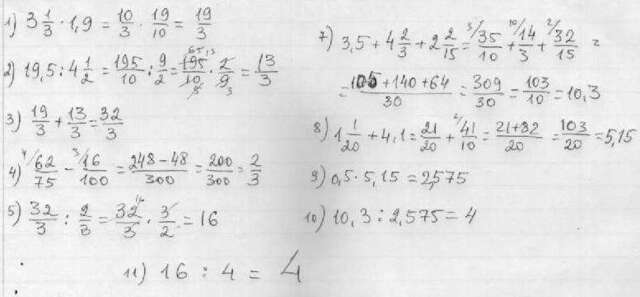 1) 3 1/3 · 1,9 = 10/3 · 19/10 = 19/3
2) 19,5 : 4 1/2 = 195/10 : 9/2 = 195/10 · 2/9 = 13/3
3) 19/3 + 13/3 = 32/3
4) 4/ 62/75 - 3/ 16/100 = 248-48/300 = 200/300 = 2/3
5) 32/3 : 2/3 = 32/3 · 3/2 = 16
7) 3,5 + 4 2/3 + 2 2/15 = 3/ 35/10 + 10/ 14/3 + 2/ 32/15 =
= 105+140+64/30 = 309/30 = 103/10 = 10,3
8) 1 1/20 + 4,1 = 21/20 + 2/ 41/10 = 21+82/20 = 103/20 = 5,15
9) 0,5 · 5,15 = 2,575
10) 10,3 : 2,575 = 4
11) 16 : 4 = 4